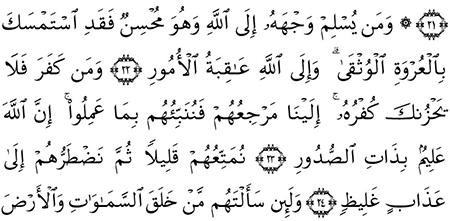 ﴿٢١﴾ ۞ وَمَن يُسْلِمْ وَجْهَهُۥٓ إِلَى ٱللَّهِ وَهُوَ مُحْسِنٌ فَقَدِ ٱسْتَمْسَكَ
بِٱلْعُرْوَةِ ٱلْوُثْقَىٰ ۗ وَإِلَى ٱللَّهِ عَـٰقِبَةُ ٱلْأُمُورِ ﴿٢٢﴾ وَمَن كَفَرَ فَلَا
يَحْزُنكَ كُفْرُهُۥٓ ۚ إِلَيْنَا مَرْجِعُهُمْ فَنُنَبِّئُهُم بِمَا عَمِلُوٓا۟ ۚ إِنَّ ٱللَّهَ
عَلِيمٌۢ بِذَاتِ ٱلصُّدُورِ ﴿٢٣﴾ نُمَتِّعُهُمْ قَلِيلًا ثُمَّ نَضْطَرُّهُمْ إِلَىٰ
عَذَابٍ غَلِيظٍ ﴿٢٤﴾ وَلَئِن سَأَلْتَهُم مَّنْ خَلَقَ ٱلسَّمَـٰوَٰتِ وَٱلْأَرْضَ